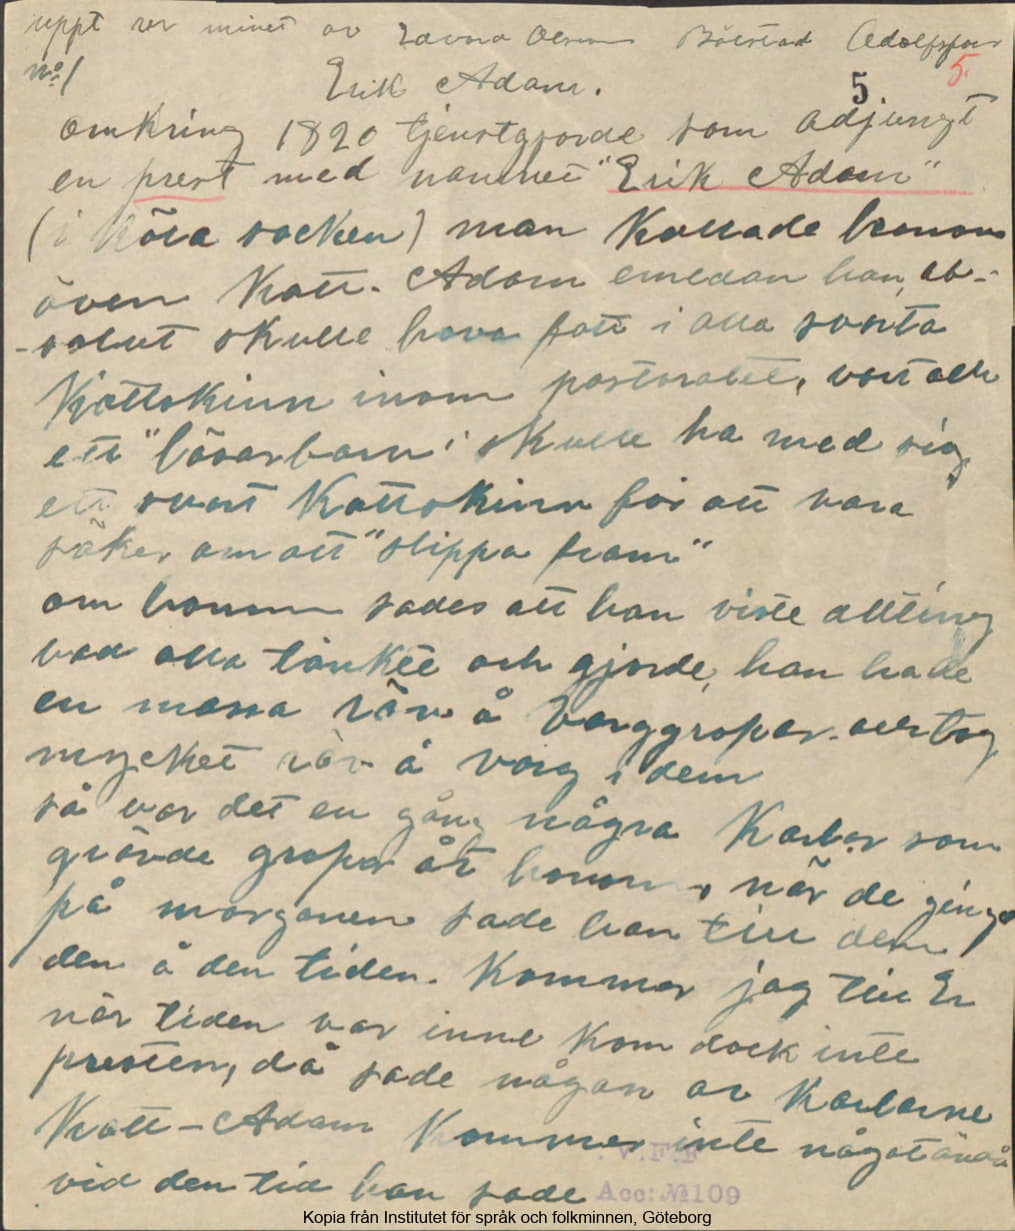 uppt ur minet av Olsson Bölstad Adolfsfors
No 1
5
5.
Erik Adam.
omkring 1820 tjenstgjorde som adjungt
en prest med namnet "Erik Adam"
(i Köla socken) man kallade honom
även Katt-Adam emedan han ab-
-solut skulle hava fatt i alla svarta
Kjattskinn inom pastoratet, vart och
ett "läsarbarn" skulle ha med sig
ett svart Kattskinn för att vara
säker om att "slippa fram"
om honom sades att han viste allting
vad alla tänkte och gjorde, han hade
en massa räv å varggropar och tog
mycket räv å varg i dem
så var det en gång några Karlar som
grävde gropar åt honom, när de gingo
på morgonen sade han till dem,
den å den tiden. Kommer jag till Er
när tiden var inne kom dock inte
presten, då sade någon av Karlarne
Katt-Adam Kommer inte något ändå
vid den tid han sade
V.F.F
Acc: № 109
Kopia från Institutet för språk och folkminnen, Göteborg